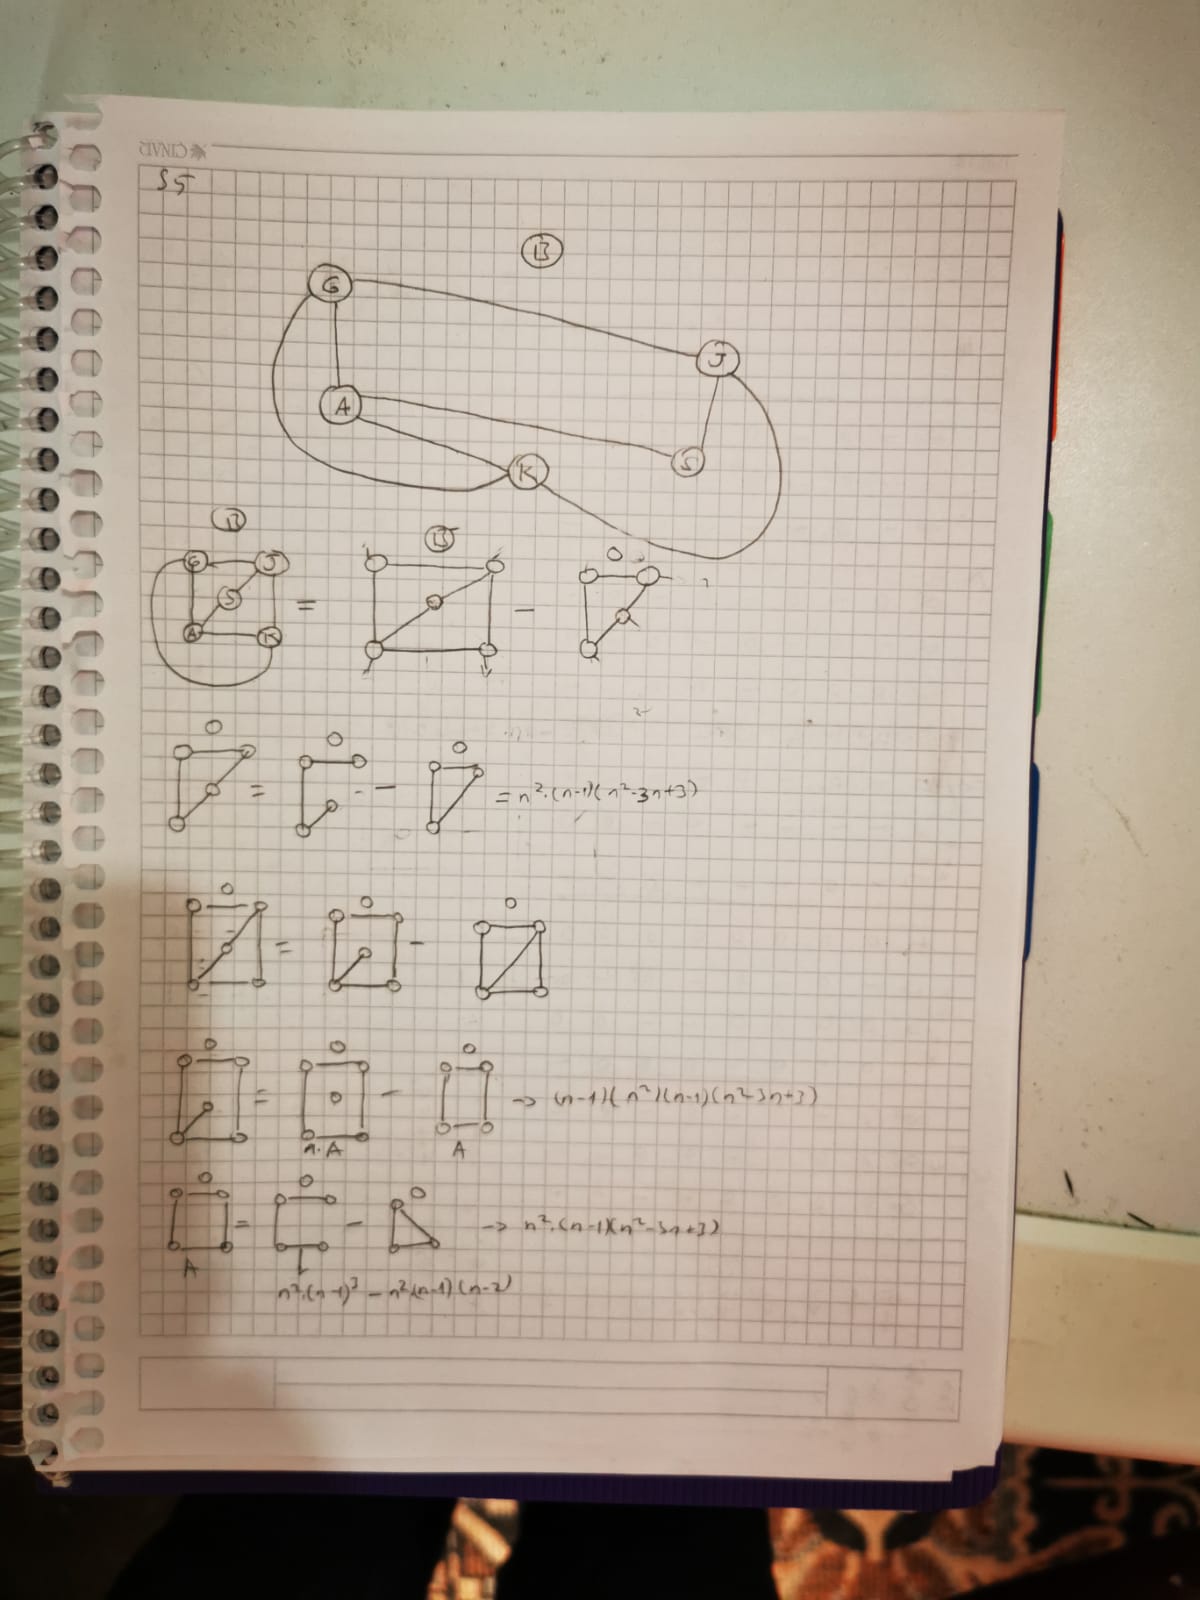 ÇINAR
S5
B
G
J
A
S
K
B B
G J
S
A K
= -
= - = n².(n-1)(n²-3n+3)
= -
= - → (n-1)(n²)(n-1)(n²-3n+3)
n.A A
= - → n².(n-1)(n²-3n+3)
A
n².(n-1)³ - n²(n-1)(n-2)